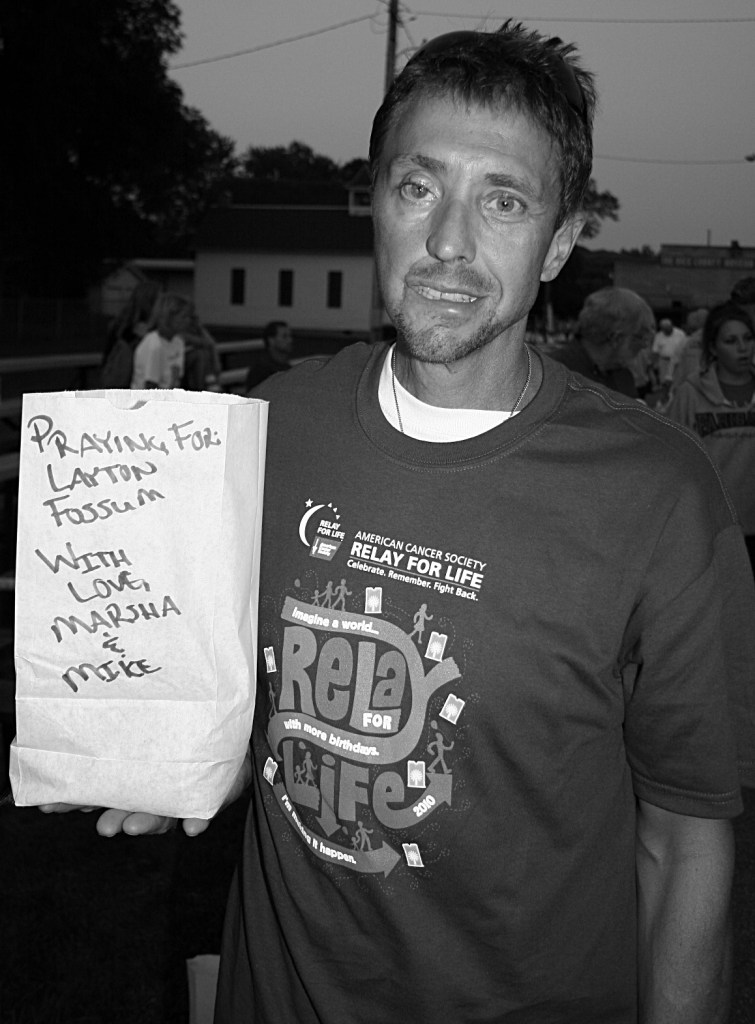 PRAYING FOR:
LAYTON
FOSSUM
WITH
LOVE,
MARSHA
&
MIKE
RELAY
FOR LIFE
AMERICAN CANCER SOCIETY
RELAY FOR LIFE
Celebrate. Remember. Fight Back.
Imagine a world...
RELAY
FOR
with more birthdays.
LiFe
2010
I'm making it happen.